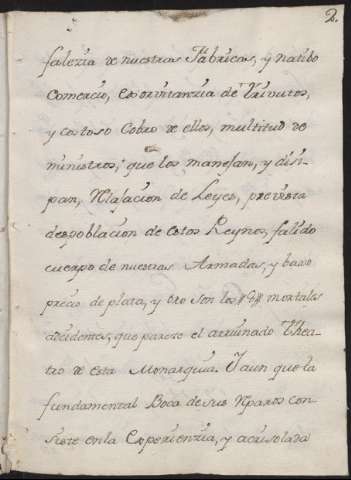 2.
falezia de nuestras Fabricas, y natibo
Comercio, exorvitanzia de Trivutos,
y costoso Cobro de ellos, multitud de
ministros, que los manejan, y disi-
pan, Relajacion de Leyes, prevista
despoblacion de estos Reynos, falido
cuerpo de nuestras Armadas, y baxo
precio de plata, y oro son los mortales
accidentes, que pareze el arruinado Thea-
tro de esta Monarquia. Y aun que la
fundamental Boca de sus Reparos con-
siste en la Experienzia, y acrisolada